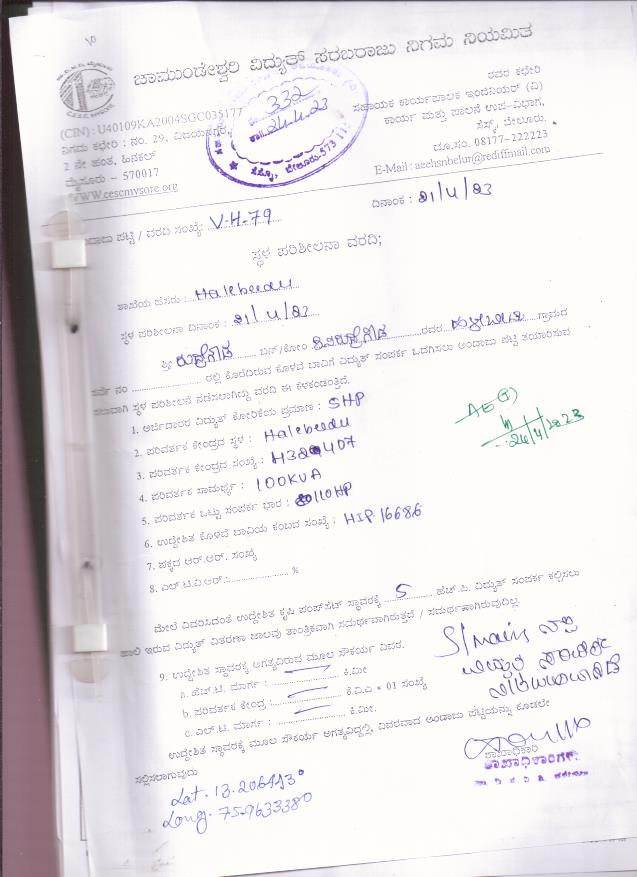 ಚಾಮುಂಡೇಶ್ವರಿ ವಿದ್ಯುತ್ ಸರಬರಾಜು ನಿಗಮ ನಿಯಮಿತ
C.E.S.C. MYSORE
332
24.4.23
ಸೆಸ್ಕ್, ಬೇಲೂರು-573 11
(CIN): U40109KA2004SGC035177
ನಿಗಮ ಕಛೇರಿ : ನಂ. 29, ವಿಜಯನಗರ,
2 ನೇ ಹಂತ, ಹಿನಕಲ್
ಮೈಸೂರು - 570017
WWW.cescmysore.org
ರವರ ಕಛೇರಿ
ಸಹಾಯಕ ಕಾರ್ಯಪಾಲಕ ಇಂಜಿನಿಯರ್ (ವಿ)
ಕಾರ್ಯ ಮತ್ತು ಪಾಲನೆ ಉಪ-ವಿಭಾಗ,
ಸೆಸ್ಕ್, ಬೇಲೂರು.
ದೂ.ಸಂ. 08177-222223
E-Mail : aeehsnbelur@rediffmail.com
ಪಟ್ಟಿ / ವರದಿ ಸಂಖ್ಯೆ: V-H-79
ದಿನಾಂಕ : 21/4/23
ಸ್ಥಳ ಪರಿಶೀಲನಾ ವರದಿ;
ಶಾಖೆಯ ಹೆಸರು : Halebeedu
ಸ್ಥಳ ಪರಿಶೀಲನಾ ದಿನಾಂಕ : 21/4/23
ಶ್ರೀ ರುದ್ರೇಗೌಡ ಬಿನ್/ಕೋಂ ರವರ ಗ್ರಾಮದ
ಸರ್ವೆ ನಂ ರಲ್ಲಿ ಕೊರೆದಿರುವ ಕೊಳವೆ ಬಾವಿಗೆ ವಿದ್ಯುತ್ ಸಂಪರ್ಕ ಒದಗಿಸಲು ಅಂದಾಜು ಪಟ್ಟಿ ತಯಾರಿಸುವ
ಸಲುವಾಗಿ ಸ್ಥಳ ಪರಿಶೀಲನೆ ನಡೆಸಲಾಗಿದ್ದು ವರದಿ ಈ ಕೆಳಕಂಡಂತಿದೆ.
1. ಅರ್ಜಿದಾರರ ವಿದ್ಯುತ್ ಕೋರಿಕೆಯ ಪ್ರಮಾಣ : 5HP
2. ಪರಿವರ್ತಕ ಕೇಂದ್ರದ ಸ್ಥಳ : Halebeedu
3. ಪರಿವರ್ತಕ ಕೇಂದ್ರದ ಸಂಖ್ಯೆ :
4. ಪರಿವರ್ತಕ ಸಾಮರ್ಥ್ಯ : 100KVA
5. ಪರಿವರ್ತಕ ಒಟ್ಟು ಸಂಪರ್ಕ ಭಾರ : 110HP
6. ಉದ್ದೇಶಿತ ಕೊಳವೆ ಬಾವಿಯ ಕಂಬದ ಸಂಖ್ಯೆ : HIP 16686
7. ಪಕ್ಕದ ಆರ್.ಆರ್. ಸಂಖ್ಯೆ
8. ಎಲ್.ಟಿ.ವಿ.ಆರ್.: %
AE(E)
24/4/2023
ಮೇಲೆ ವಿವರಿಸಿದಂತೆ ಉದ್ದೇಶಿತ ಕೃಷಿ ಪಂಪ್‌ಸೆಟ್ ಸ್ಥಾವರಕ್ಕೆ 5 ಹೆಚ್.ಪಿ. ವಿದ್ಯುತ್ ಸಂಪರ್ಕ ಕಲ್ಪಿಸಲು
ಹಾಲಿ ಇರುವ ವಿದ್ಯುತ್ ವಿತರಣಾ ಜಾಲವು ತಾಂತ್ರಿಕವಾಗಿ ಸಮರ್ಥವಾಗಿರುತ್ತದೆ / ಸಮರ್ಥವಾಗಿರುವುದಿಲ್ಲ.
9. ಉದ್ದೇಶಿತ ಸ್ಥಾವರಕ್ಕೆ ಅಗತ್ಯವಿರುವ ಮೂಲ ಸೌಕರ್ಯ ವಿವರ.
a. ಹೆಚ್.ಟಿ. ಮಾರ್ಗ : ಕಿ.ಮೀ
b. ಪರಿವರ್ತಕ ಕೇಂದ್ರ : ಕೆ.ವಿ.ಎ * 01 ಸಂಖ್ಯೆ
c. ಎಲ್.ಟಿ. ಮಾರ್ಗ : ಕಿ.ಮೀ.
ಉದ್ದೇಶಿತ ಸ್ಥಾವರಕ್ಕೆ ಮೂಲ ಸೌಕರ್ಯ ಅಗತ್ಯವಿದ್ದಲ್ಲಿ, ವಿವರವಾದ ಅಂದಾಜು ಪಟ್ಟಿಯನ್ನು ಕೂಡಲೇ
ಸಲ್ಲಿಸಲಾಗುವುದು
ಶಾಖಾಧಿಕಾರಿ
ಶಾಖಾಧಿಕಾರಿಗಳು
Long. 75.9633380